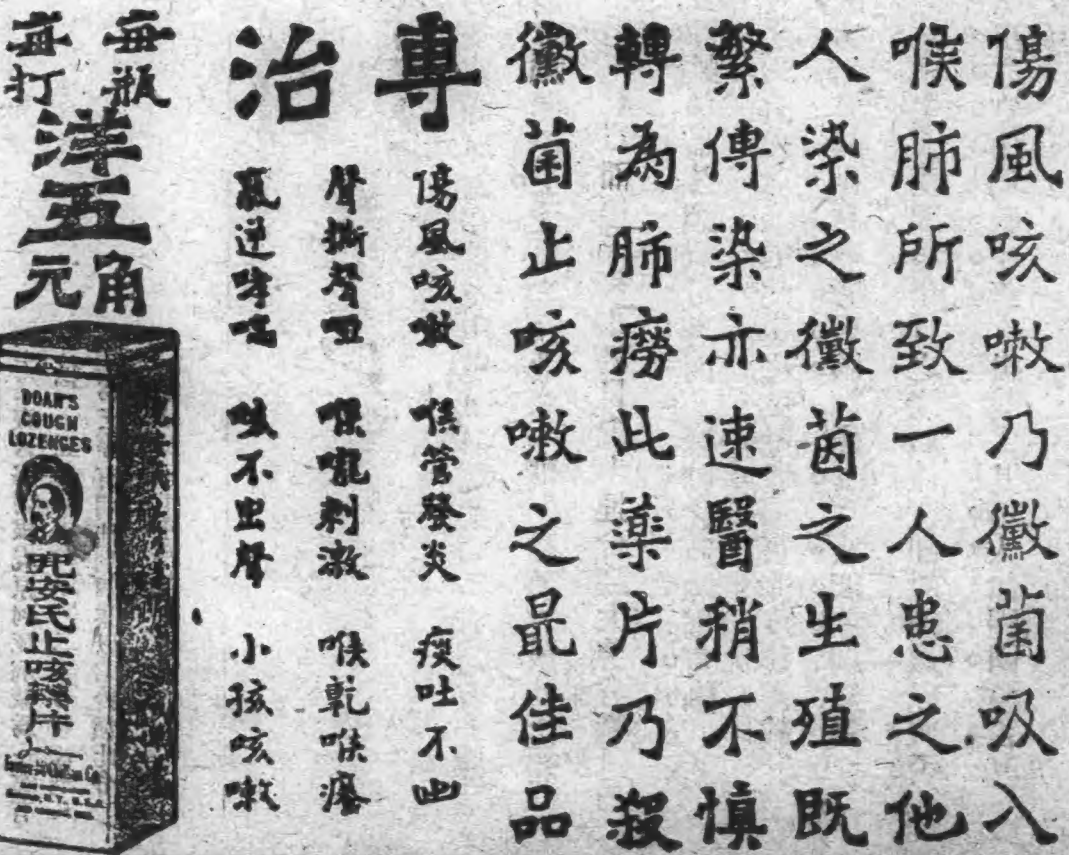 傷風咳嗽乃黴菌吸入
喉肺所致一人患之他
人染之黴茵之生殖既
繁傳染亦速醫稍不慎
轉為肺癆此藥片乃殺
黴菌止咳嗽之最佳品
專治
傷風咳嗽 喉管發炎 痰吐不出
聲撕聲啞 喉嚨刺激 喉乾喉癢
氣逆哮喘 咳不出聲 小孩咳嗽
每瓶
每打
洋五
角
元
DOAN'S
COUGH
LOZENGES
兜安氏止咳藥片